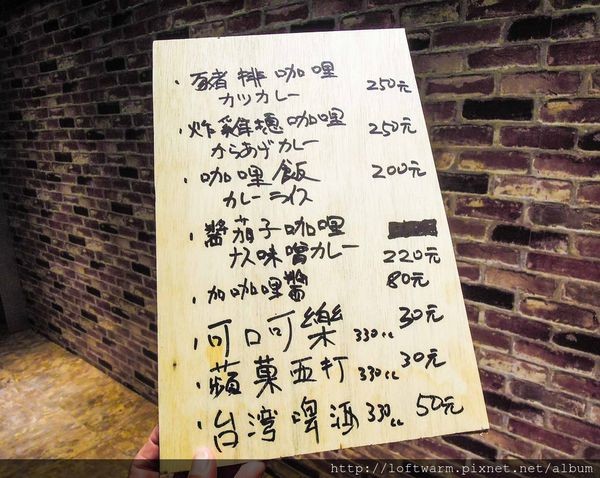 · 豬排咖哩 250元
カツカレー
· 炸雞穗咖哩 250元
からあげカレー
· 咖哩飯 200元
カレーライス
· 醬茄子咖哩
ナス味噌カレー 220元
· 加咖哩醬 80元
· 可口可樂 330cc 30元
· 蘋菓西打 330cc 30元
· 台灣啤酒 330cc 50元
http://loftwarm.pixnet.net/album